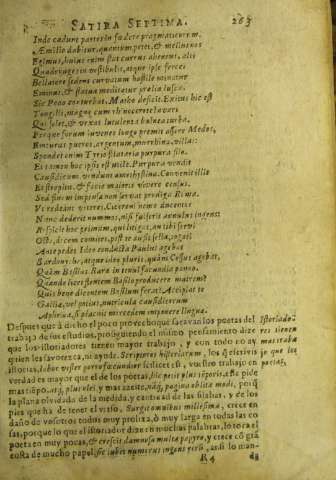 SATIRA SEPTIMA. 263
Inde cadunt partes in foedere pragmaticorum.
Æmilio dabitur, quantum petet, & melius nos
Egimus, huius enim stat currus ahenens, alti
Quadriiuges in vestibulis, atque ipse feroci
Bellatore sedens curvatum hastile minatur
Eminus, & statua meditatur prælia lusca.
Sic Pedo conturbat, Matho deficit. Exitus hic est
Tongilli, magno cum rhinocerote lavari
Qui solet, & vexat lutulenta balnea turba.
Perque forum iuvenes longo premit assere Medos,
Empturus pueros, argentum, murrhina, villas:
Spondet enim Tyrio stlataria purpura filo.
Et tamen hoc ipsis est utile. Purpura vendit
Causidicum, vendunt amethystina. Convenit illi
Et strepitu, & facie maioris vivere census.
Sed finem impensæ non servat prodiga Roma.
Vt redeant veteres, Ciceroni nemo ducentos
Nunc dederit nummos, nisi fulserit annulus ingens:
Respicit hoc primum, qui litigat, an tibi servi
Octo, decem comites, post te an sit sella, togati
Ante pedes. Ideo conducta Paulus agebat
Sardonyche, atque ideo pluris, quàm Cossus agebat,
Quàm Basilus. Rara in tenui facundia panno.
Quando licet flentem Basilo producere matrem?
Quis bene dicentem Basilum ferat? Accipiat te
Gallia, vel potius, nutricula causidicorum
Aphrica, si placuit mercedem imponere linguæ.
Despues que à dicho el poco provecho que sacavan los poetas del
trabajo de sus estudios, prosiguiendo el mismo pensamiento dize
que los istoriadores tienen mayor trabajo, y con todo no ay
quien les favoresca, ni ayude. Scriptores historiarum, los
istorias, labor vester
verdad es mayor que el de los poetas, hic petit plus
mas tiempo, atq, plus olei, y mas azeite,
la plana olvidada de la medida, y cantidad de las silabas, y de los
pies que ha de tener el verso, Surgit omnibus millesima, crece en
daño de vosotros todos muy prolixa, ò muy larga en todas las co
sas, porque lo que el istoriador dize en muchas palabras, lo toca el
poeta en muy pocas, & crescit damnosa multa papyro, y crece co gra
costa de mucho papel, sic iubet numerus ingens rerum, ansi lo man
R4 da
Istoriadores